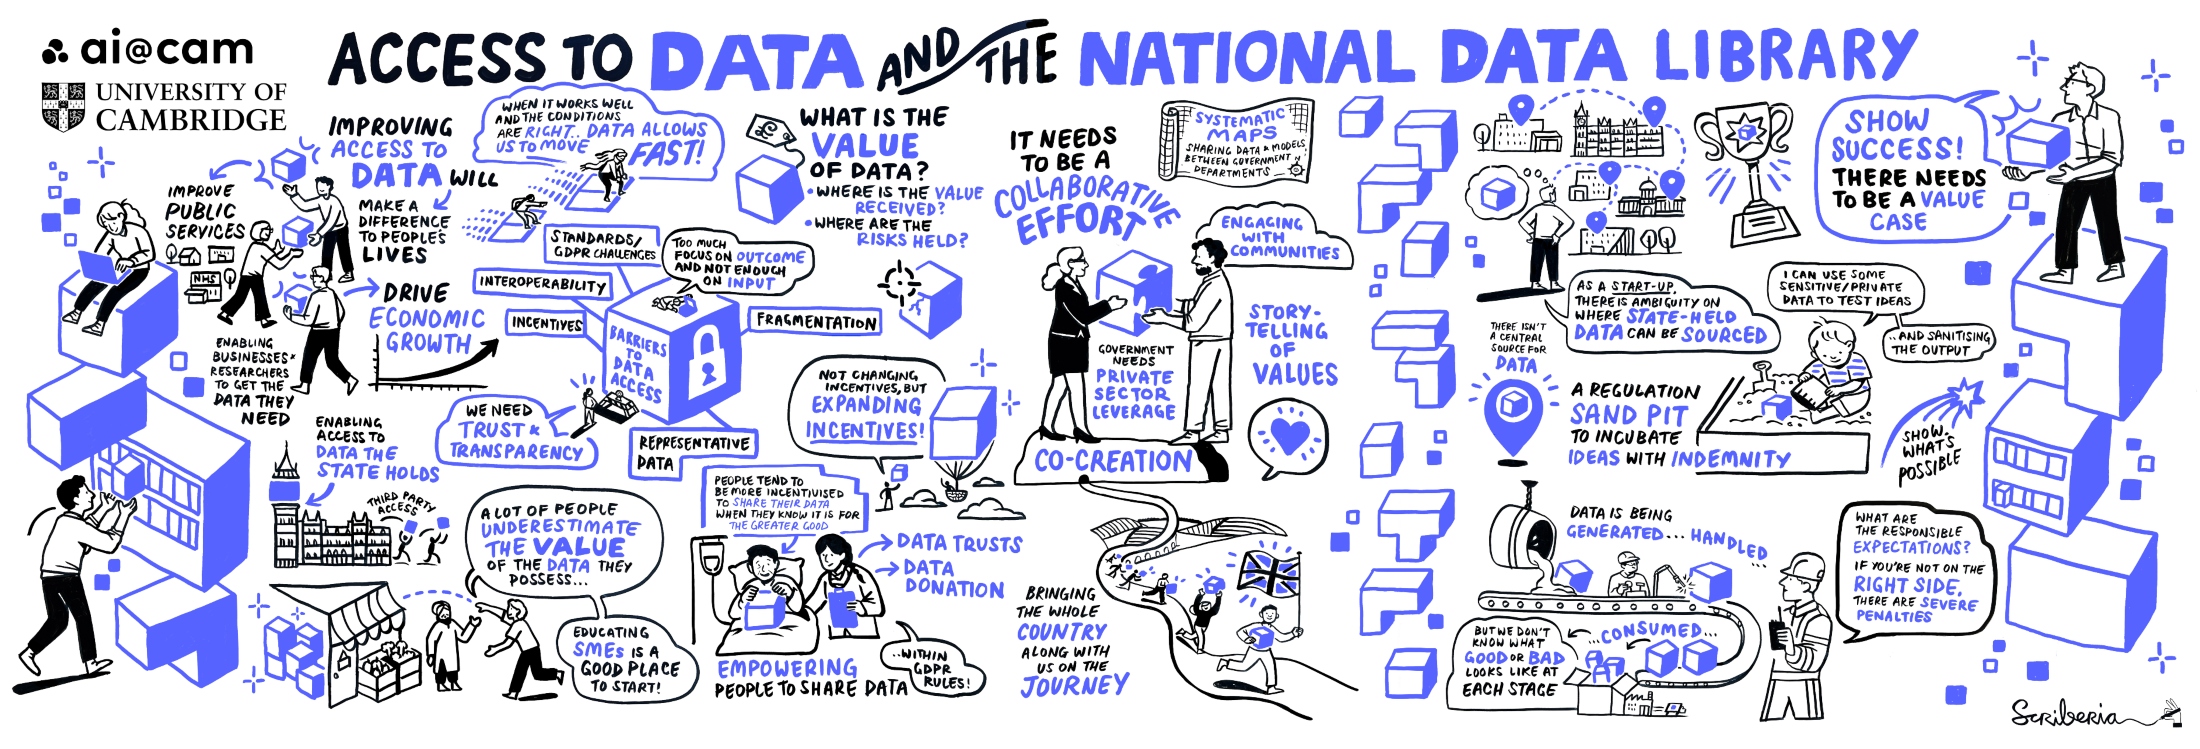 ai@cam
UNIVERSITY OF
CAMBRIDGE
ACCESS TO DATA AND THE NATIONAL DATA LIBRARY
IMPROVING
ACCESS TO
DATA WILL
IMPROVE
PUBLIC
SERVICES
NHS
MAKE A
DIFFERENCE
TO PEOPLES
LIVES
DRIVE
ECONOMIC
GROWTH
ENABLING
BUSINESSES &
RESEARCHERS
TO GET THE
DATA THEY
NEED
ENABLING
ACCESS TO
DATA THE
STATE HOLDS
THIRD PARTY
ACCESS
WHEN IT WORKS WELL
AND THE CONDITIONS
ARE RIGHT.. DATA ALLOWS
US TO MOVE FAST!
WHAT IS THE
VALUE
OF DATA?
• WHERE IS THE VALUE
RECEIVED?
• WHERE ARE THE
RISKS HELD?
£
STANDARDS/
GDPR CHALLENGES
INTEROPERABILITY
INCENTIVES
TOO MUCH
FOCUS ON OUTCOME
AND NOT ENOUGH
ON INPUT
FRAGMENTATION
BARRIERS
TO
DATA
ACCESS
WE NEED
TRUST &
TRANSPARENCY
REPRESENTATIVE
DATA
NOT CHANGING
INCENTIVES, BUT
EXPANDING
INCENTIVES!
A LOT OF PEOPLE
UNDERESTIMATE
THE VALUE
OF THE DATA THEY
POSSESS...
EDUCATING
SMEs IS A
GOOD PLACE
TO START!
PEOPLE TEND TO
BE MORE INCENTIVISED
TO SHARE THEIR DATA
WHEN THEY KNOW IT IS FOR
THE GREATER GOOD
DATA TRUSTS
DATA
DONATION
EMPOWERING
PEOPLE TO SHARE DATA
..WITHIN
GDPR
RULES!
IT NEEDS
TO BE A
COLLABORATIVE
EFFORT
SYSTEMATIC
MAPS
SHARING DATA & MODELS
BETWEEN GOVERNMENT
DEPARTMENTS
N
ENGAGING
WITH
COMMUNITIES
GOVERNMENT
NEEDS
PRIVATE
SECTOR
LEVERAGE
STORY-
TELLING
OF
VALUES
CO-CREATION
BRINGING
THE WHOLE
COUNTRY
ALONG WITH
US ON THE
JOURNEY
SHOW
SUCCESS!
THERE NEEDS
TO BE A VALUE
CASE
AS A START-UP,
THERE IS AMBIGUITY ON
WHERE STATE-HELD
DATA CAN BE SOURCED
THERE ISN'T
A CENTRAL
SOURCE FOR
DATA
I CAN USE SOME
SENSITIVE/PRIVATE
DATA TO TEST IDEAS
...AND SANITISING
THE OUTPUT
A REGULATION
SAND PIT
TO INCUBATE
IDEAS WITH INDEMNITY
SHOW
WHAT'S
POSSIBLE
DATA IS BEING
GENERATED... HANDLED...
...CONSUMED...
BUT WE DON'T
KNOW WHAT
GOOD OR BAD
LOOKS LIKE AT
EACH STAGE
WHAT ARE
THE RESPONSIBLE
EXPECTATIONS?
IF YOU'RE NOT ON THE
RIGHT SIDE,
THERE ARE SEVERE
PENALTIES
Scriberia